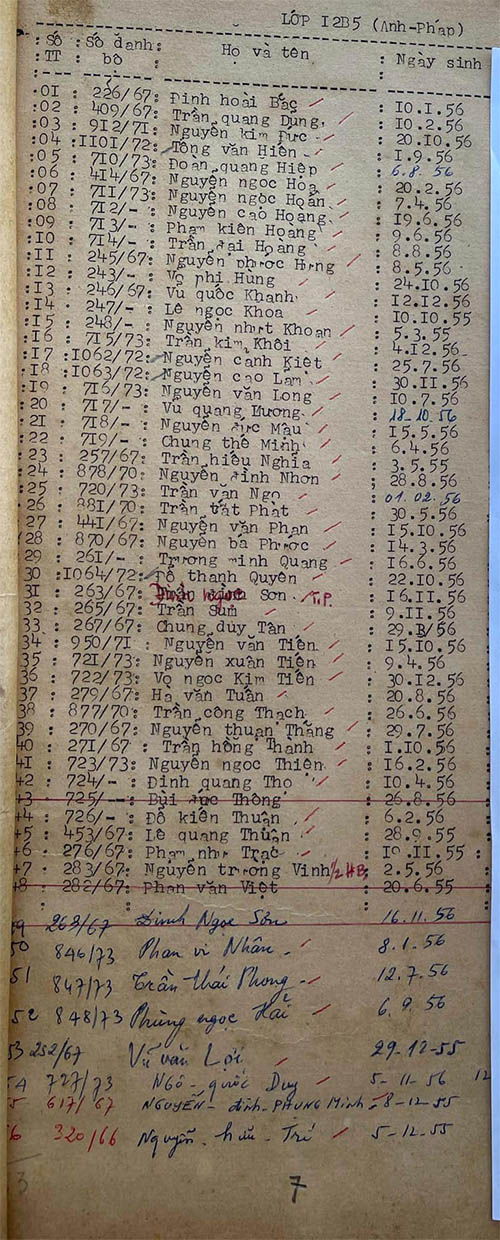 LỚP I2B5 (Anh-Pháp)
Số TT : Số danh bộ : Họ và tên : Ngày sinh
:01 : 226/67: Đinh hoài Bắc : I0.I.56
:02 : 409/67: Trần quang Dụng : I0.2.56
:03 : 9I2/7I: Nguyễn kim Đức : 20.I0.56
:04 :II0I/72: Tống văn Hiên : I.9.56
:05 : 7I0/73: Đoàn quang Hiệp : 6.8.56
:06 : 4I4/67: Nguyễn ngọc Hòa : 20.2.56
:07 : 7II/73: Nguyễn ngọc Hoàn : 7.4.56
:08 : 7I2/- : Nguyễn cao Hoàng : I9.6.56
:09 : 7I3/- : Phạm kiên Hoàng : 9.6.56
:I0 : 7I4/- : Trần đại Hoàng : 8.8.56
:II : 245/67: Nguyễn phước Hưng : 8.5.56
:I2 : 243/- : Võ phi Hùng : 24.I0.56
:I3 : 246/67: Vũ quốc Khanh : I2.I2.56
:I4 : 247/- : Lê ngọc Khoa : I0.I0.55
:I5 : 248/- : Nguyễn nhựt Khoan : 5.3.55
:I6 : 7I5/73: Trần kim Khôi : 4.I2.56
:I7 :I062/72: Nguyễn cảnh Kiệt : 25.7.56
:I8 :I063/72: Nguyễn cao Lâm : 30.II.56
:I9 : 7I6/73: Nguyễn văn Long : I0.7.56
:20 : 7I7/- : Vũ quang Lương : 18.10.56
:2I : 7I8/- : Nguyễn đức Mậu : I5.5.56
:22 : 7I9/- : Chung thế Minh : 6.4.56
:23 : 257/67: Trần hiếu Nghĩa : 3.5.55
:24 : 878/70: Nguyễn đình Nhơn : 28.8.56
:25 : 720/73: Trần văn Ngọ : 01.02.56
:26 : 88I/70: Trần tất Phát : 30.5.56
:27 : 44I/67: Nguyễn văn Phan : I5.I0.56
:28 : 870/67: Nguyễn bá Phước : I4.3.56
:29 : 26I/- : Trương minh Quang : I6.6.56
30 :I064/72: Đỗ thanh Quyên : 22.I0.56
3I : 263/67: Sơn T.P. : I6.II.56
32 : 265/67: Trần Sum : 9.II.56
33 : 267/67: Chung duy Tân : 29. /56
34 : 950/7I : Nguyễn văn Tiên : I5.I0.56
35 : 72I/73: Nguyễn xuân Tiên : 9.4.56
36 : 722/73: Võ ngọc Kim Tiên : 30.I2.56
37 : 279/67: Hạ văn Tuấn : 20.8.56
38 : 877/70: Trần công Thạch : 26.6.56
39 : 270/67: Nguyễn thuận Thắng : 29.7.56
40 : 27I/67 : Trần hồng Thanh : I.I0.56
4I : 723/73: Nguyễn ngọc Thiện : I6.2.56
42 : 724/- : Đinh quang Thọ : I0.4.56
43 : 725/-- : Bùi đức Thông : 26.8.56
44 : 726/- : Đỗ kiên Thuận : 6.2.56
45 : 453/67: Lê quang Thuận : 28.9.55
46 : 276/67: Phạm như Trạc : I0.II.55 :
47 : 283/67: Nguyễn trương Vinh 1/2 HB : 2.5.56
48 : 282/67: Phan văn Việt : 20.6.55
49 268/67 Đinh Ngọc Sơn 16.11.56
50 846/73 Phan vi Nhân 8.1.56
51 847/73 Trần thái Phong 12.7.56
52 848/73 Phùng ngọc Hải 6.9.56
53 252/67 Vũ văn Lợi 29-12-55
54 727/73 Ngô-quốc Duy 5-11-56 12
55 617/67 NGUYỄN-đình-PHỤNG Minh 8-12-55
56 320/66 Nguyễn-hữu-Trí 5-12-55
7